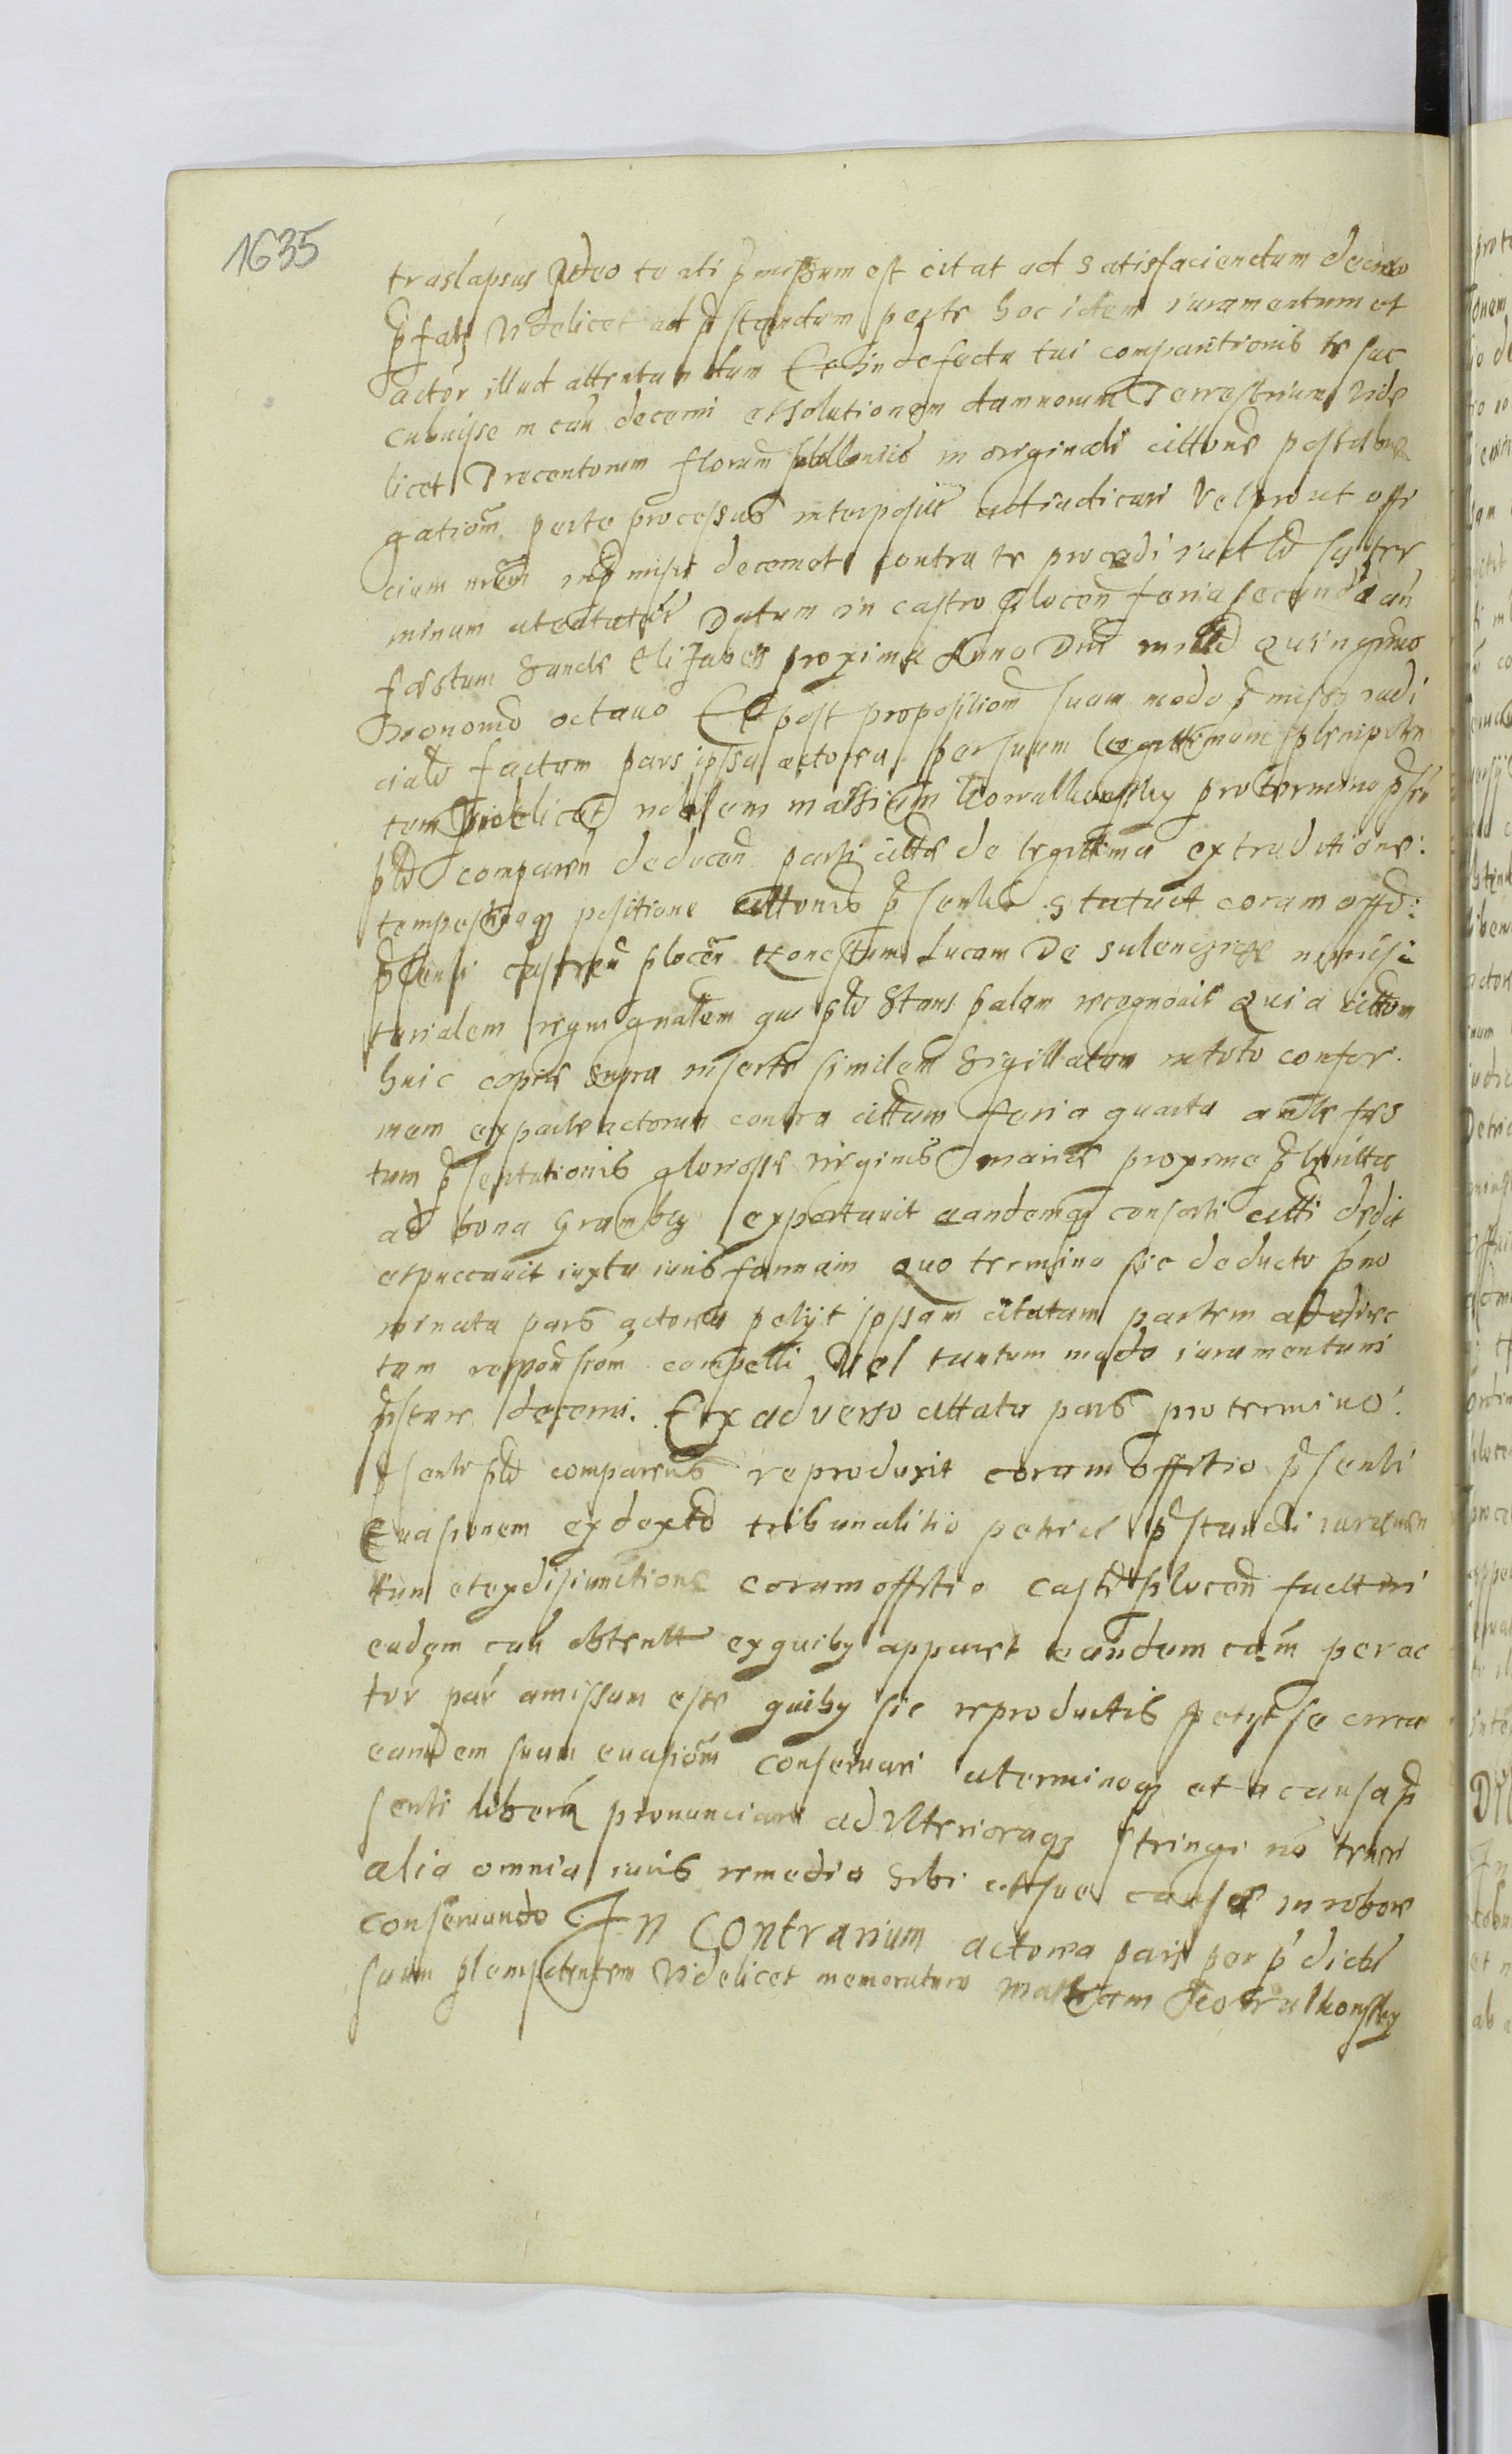 1635
traslapsus Ideo te uti p̄missum est citat ad satisfaciendum decreto
p̄fatꝫ videlicet ad p̄standum per te hoc idem iuramentum et
actor illud attentandum Et in defectu tui comparitionis te suc
cubuisse in cau decerni et solutionem damnorum Terrestrium vide
licet Trecentorum floren pollonice in originali cittone
gationem per te processus interposit adiudicari vel prout offi
cium nrum in p̄missis decernet contra te procedi iudt
minum attentatur Datum in castro plocen feria secunda an
festum Sancte Elizabeth proxima Anno Dni milld quingmo
nonomo octavo Et post propositiom suam modo p̄missꝫ iudi
cialr factam pars ipsa actorea per suum legittimum plenipoten
tem videlicet nobilem mathiam Kowalkowsky pro termino p̄sen
pld comparen deducen parti cittae de legittima extraditione:
tempestivaqꝫ positione cittonis p̄sentis statuit coram offo:
p̄senti castren plocen honestum Lucam De sulencycze ministe
rialem regni gnalem qui pld stans palam recognovit Quia cittom
huic copie supra inserte similem Sigillatam in toto confor
mem ex parte actorum contra cittum feria quarta ante fes
tum p̄sentationis gloriosse virginis marie proxime p̄terita
ad bona Grambky exportavit eandemqꝫ consorti citti dedit
et p̄ccavit iuxta iuris formam Quo termino sic deducto p̄no
minata pars actorea petijt ipsam citatam partem ad direc
tam responsiom compelli Vel tantum modo iuramentum
p̄stare decerni. Ex adverso cittata pars pro termino
p̄sente pld comparens reproduxit coram offitio p̄senti
Evasionem ex dexto tribunalitio petric p̄standi iuramen
tum et ex disiunctione coram offitio castr plocen
eadem cau obtent ex quibꝫ apparet eandem cam per ac
tor par amissam esse quibꝫ sic reproductis petijt se circa
eandem suam evasiom conservari a terminoqꝫ et a causa p̄
senti liberꝫ pronunciari ad ulterioraqꝫ stringi no teneri
alia omnia iuris remedia sibi et sue causae in robore
conservando In Contrarium actorea pars per p̄dictu
suum plenipotentem videlicet memoratum Mathiam Kowalkowsky